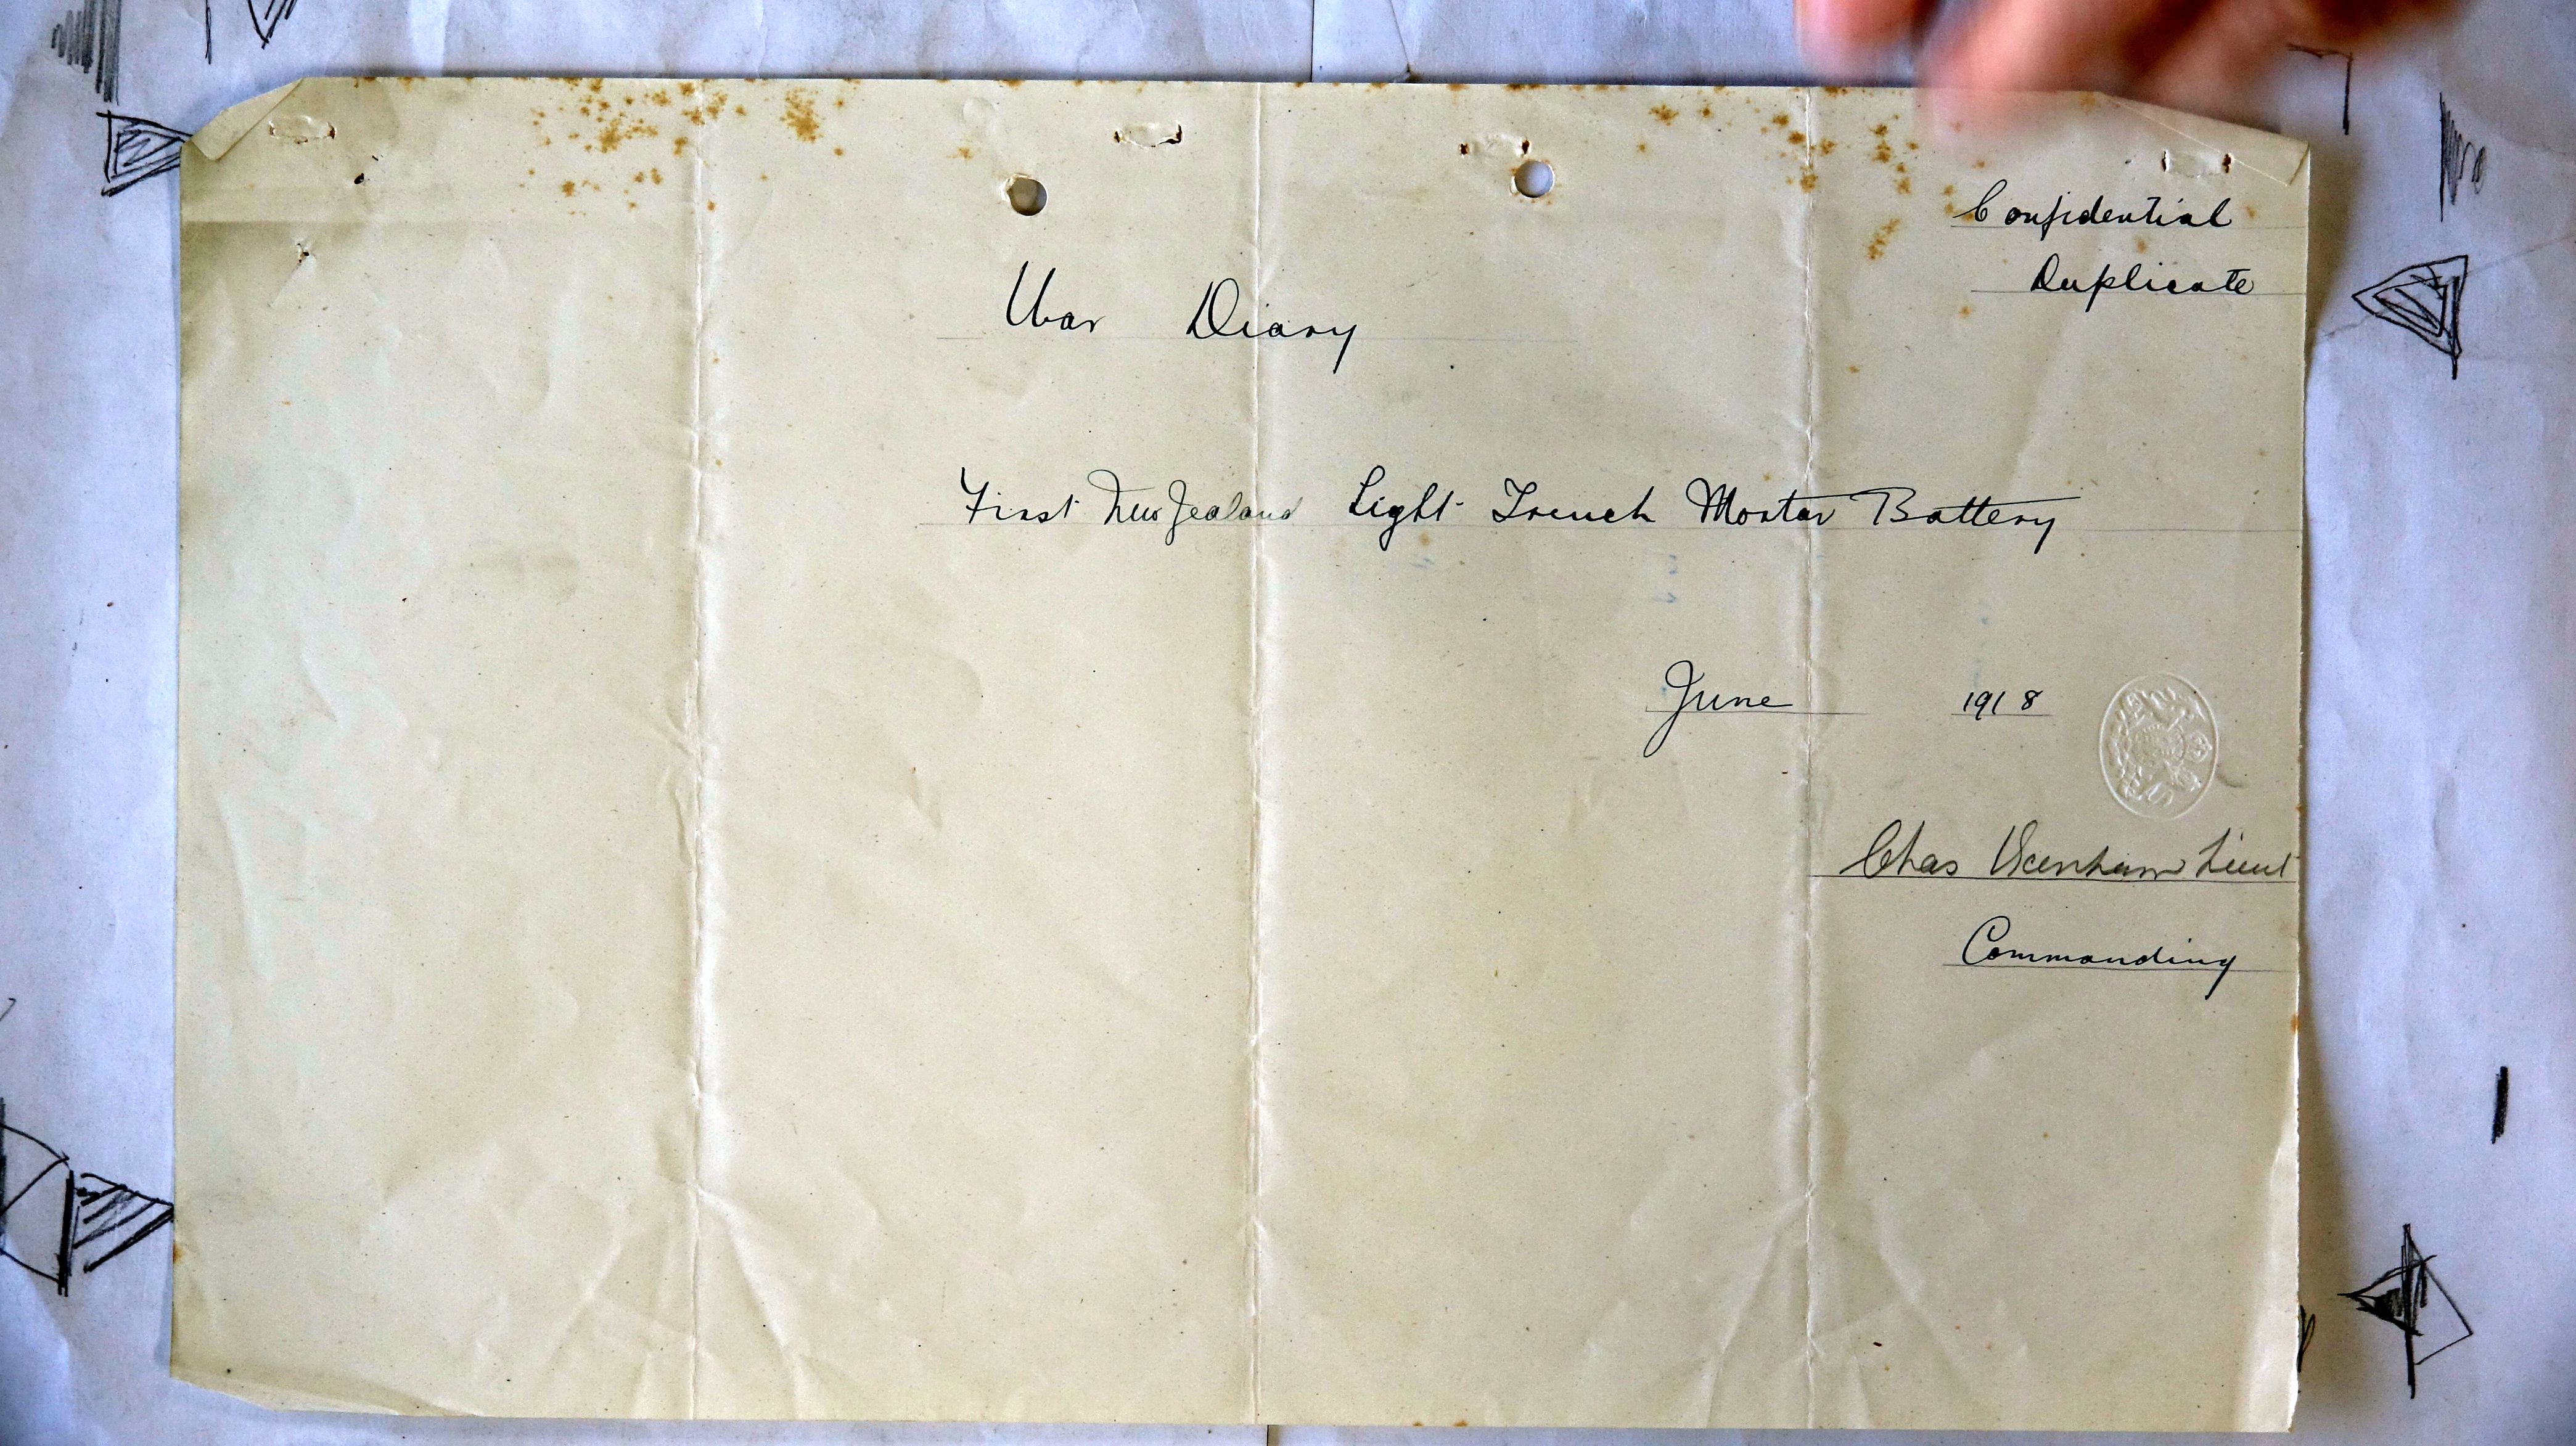 Confidential
Duplicate
War Diary
First New Zealand Light Trench Mortar Battery
June 1918
Chas Lieut
Commanding